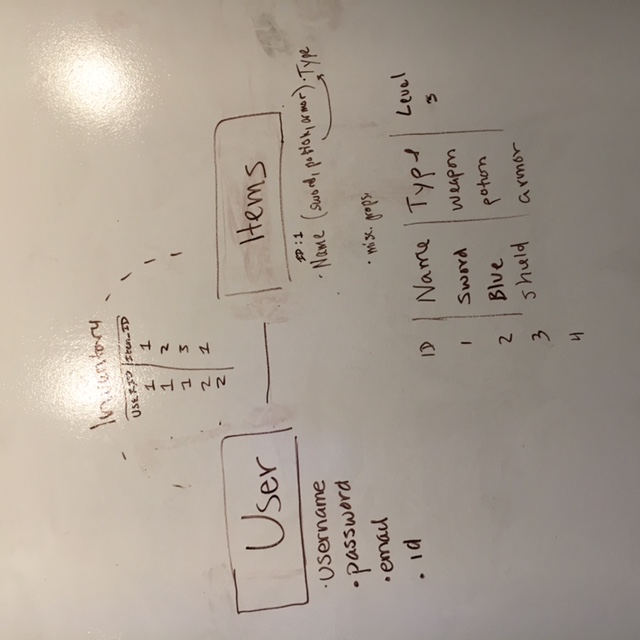 Inventory
USERID Item_ID
1 1
1 2
1 3
2 1
2
User
Items
• Username
• password
• email
• id
ID:1
• Name (sword, potion, armor) • Type
• misc. props.
ID Name Type Level
1 Sword weapon 3
2 Blue potion
3 shield armor
4